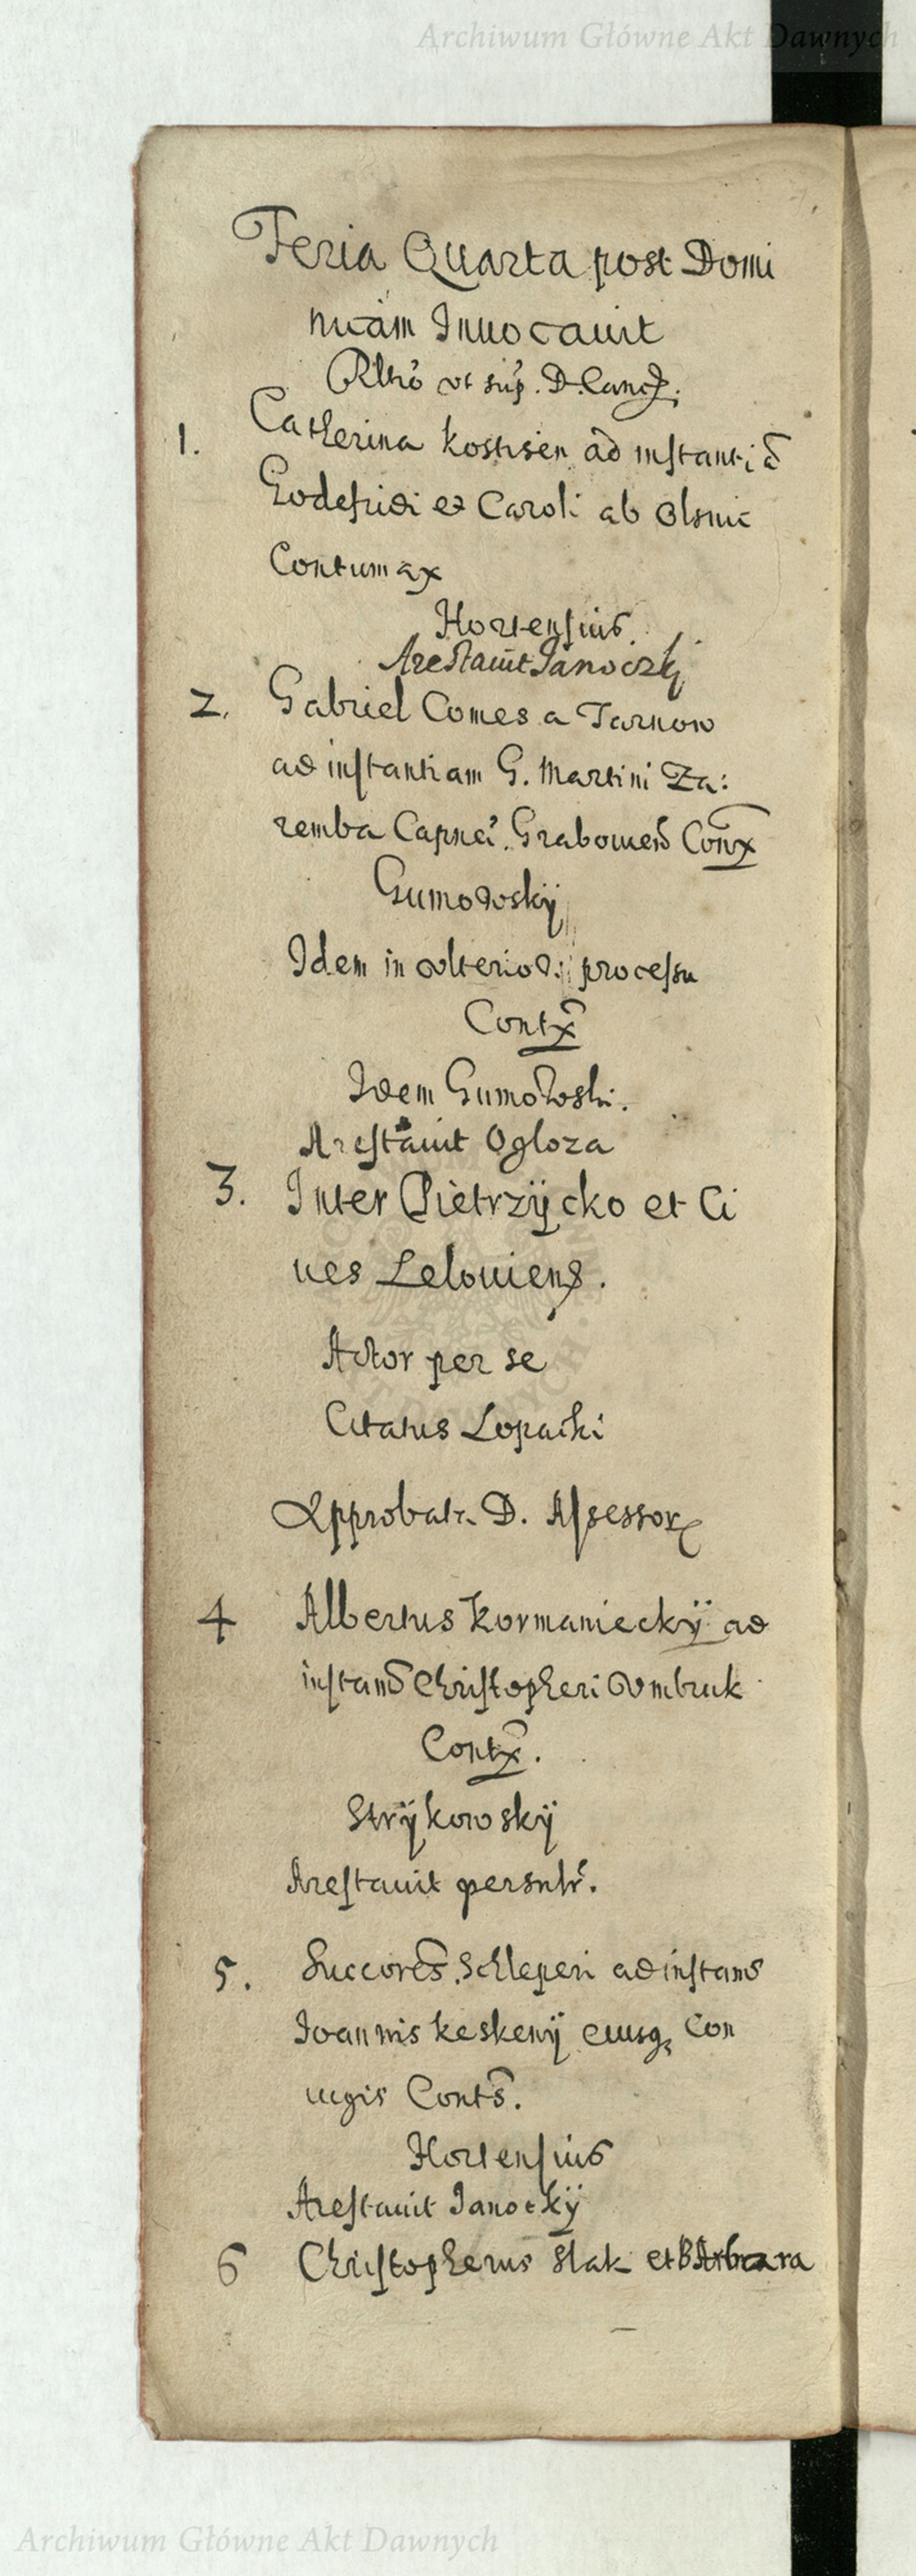 Archiwum Główne Akt Dawnych
Feria Quarta post Domi
nicam Inuocauit
ut sup. D. Canc.
1. Catherina Kostisen ad instantiã
Godefridi et Caroli ab Olsnic
Contumax
Hortensius
Arestauit Janoczkj
2. Gabriel Comes a Tarnow
ad instantiam G. Martini Za:
remba Capnei. Grabouien Contx
Gumowskÿ
Idem in vlteriori processu
Contx
Idem Gumowski.
Arestauit Ogloza
3. Inter Pietrzÿcko et Ci
ues Louiens.
Actor per se
Citatus Lopacki
Approbatr. D. Assessor
4 Albertus Kormanieckÿ ad
instand Christopheri Vmbruk
Contx.
Strÿkowskÿ
Arestauit persnlr.
5. Succores Schleperi ad instans
Ioannis Keskenÿ eiusq Con
iugis Conts.
Hortensius
Arestauit Janockÿ
6 Christopherus Slak et Barbara
Archiwum Główne Akt Dawnych